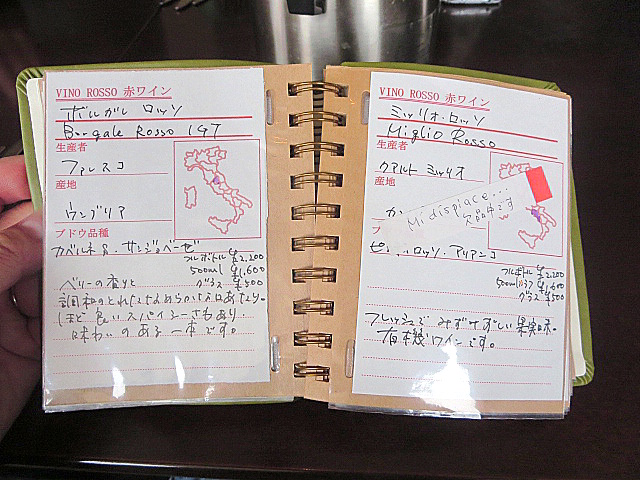 VINO ROSSO 赤ワイン
ボルガレ ロッソ
Borgale Rosso IGT
生産者
ファレスコ
産地
ウンブリア
ブドウ品種
カベルネ
サンジョベーゼ
フルボトル ¥2,200
500ml ¥1,600
グラス ¥500
ベリーの香りと
調和のとれたなめらかな
ほど良いスパイシーさもあり
味わいのある一本です。
VINO ROSSO 赤ワイン
ミッリオ・ロッソ
Miglio Rosso
生産者
クアルト ミッリオ
産地
カ
Mi dispiace...
欠品中です
ブ
ロッソ・アリアニコ
フルボトル ¥2,200
500ml ¥1,600
グラス ¥500
フレッシュでみずみずしい果実味。
有機ワインです。